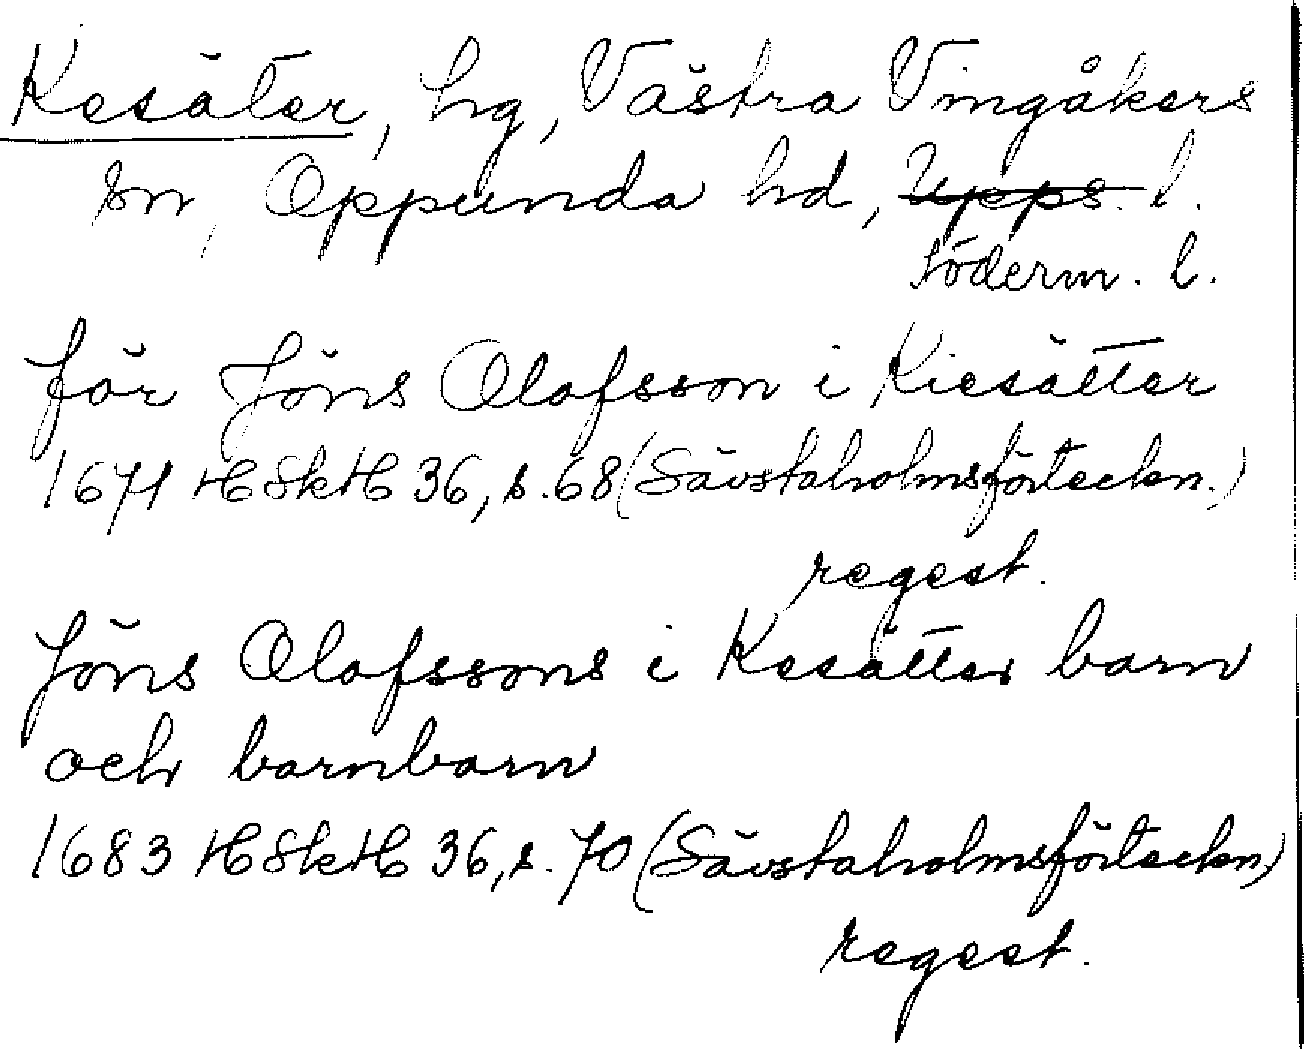 Kesäter, hg, Västra Vingåkers
sn, Oppunda hd, Upps. l.
Söderm. l.
för Jöns Olofsson i Kiesätter
1671 HSkH 36, s. 68 (Sävstaholmsförteckn.)
regest.
Jöns Olofssons i Kesätter barn
och barnbarn
1683 HSkH 36, s. 70 (Sävstaholmsförteckn)
regest.